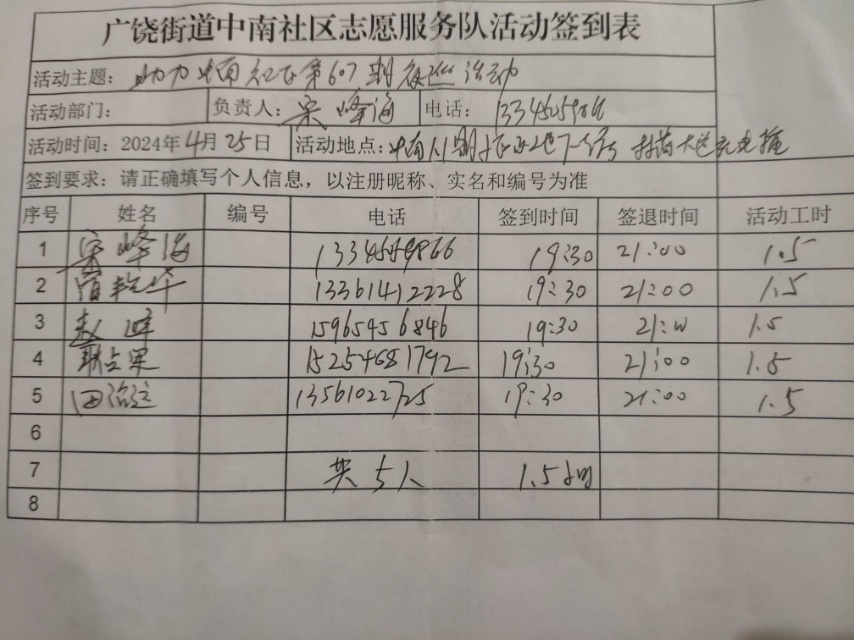 广饶街道中南社区志愿服务队活动签到表
活动主题：助力中南社区第607期夜巡活动
活动部门： 负责人：宋峰海 电话：
活动时间：2024年4月25日 活动地点：中南
签到要求：请正确填写个人信息，以注册昵称、实名和编号为准
序号 姓名 编号 电话 签到时间 签退时间 活动工时
1 宋峰海 19:30 21:00 1.5
2 13361412228 19:30 21:00 1.5
3 赵峰 15965456846 19:30 21:00 1.5
4 15254681792 19:30 21:00 1.5
5 田治运 13561022725 19:30 21:00 1.5
6
7 共5人 1.5小时
8